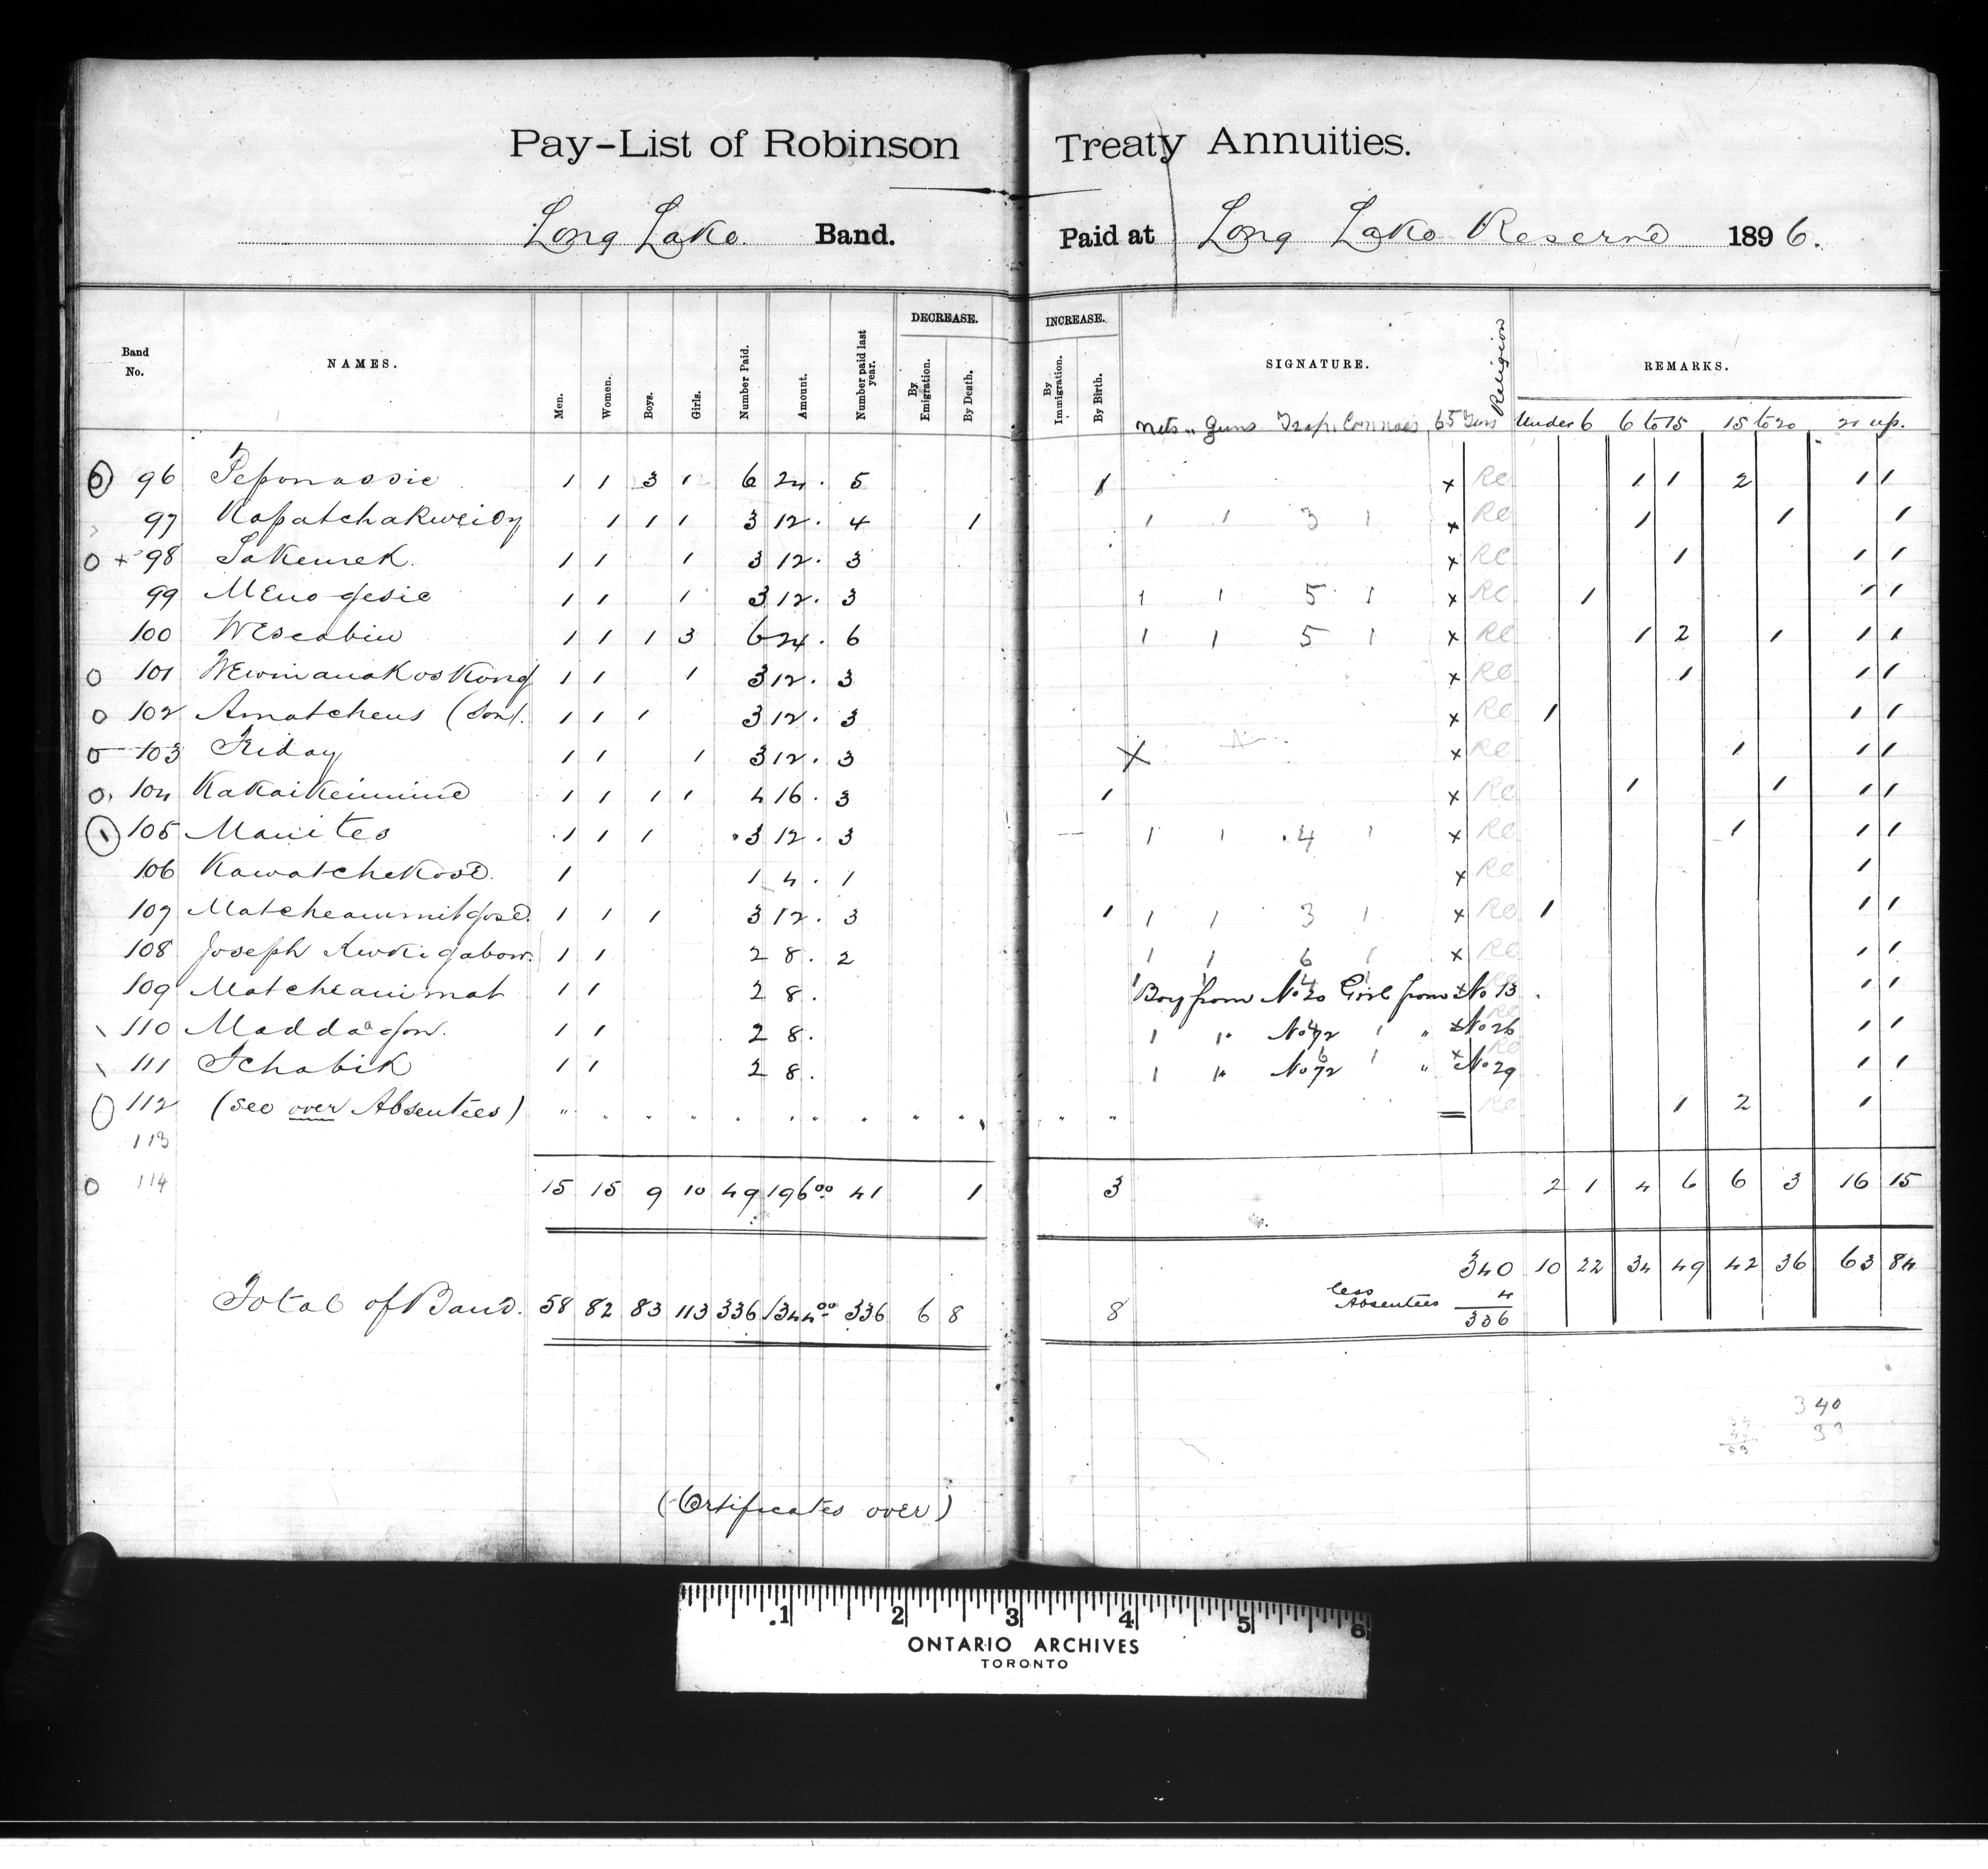 Pay-List of Robinson Treaty Annuities.
Long Lake. Band. Paid at Long Lake Reserve 1896.
Band No. NAMES. Men. Women. Boys. Girls. Number Paid. Amount. Number paid last year. DECREASE. By Emigration. By Death. INCREASE. By Immigration. By Birth. SIGNATURE. Religion REMARKS.
Nets " Guns Traps Under 6 6 to 15 15 to 20 21 up.
96 Peponassie 1 1 3 1 6 24. 5 1 x RC 1 1 2 1 1
97 1 1 1 3 12. 4 1 1 1 3 1 x RC 1 1 1
O + 98 Sakemek. 1 1 1 3 12. 3 x RC 1 1 1
99 Menogesic 1 1 1 3 12. 3 1 1 5 1 x RC 1 1 1
100 Wescabin 1 1 1 3 6 24. 6 1 1 5 1 x RC 1 2 1 1 1
O 101 1 1 1 3 12. 3 x RC 1 1 1
O 102 Amatcheus (Son). 1 1 1 3 12. 3 x RC 1 1 1
O 103 Friday 1 1 1 3 12. 3 X x RC 1 1 1
O 104 1 1 1 1 4 16. 3 1 x RC 1 1 1 1
1 105 Manites 1 1 1 3 12. 3 1 1 4 1 x RC 1 1 1
106 Kawatchekose. 1 1 4. 1 x RC 1
107 1 1 1 3 12. 3 1 1 1 3 1 x RC 1 1 1
108 Joseph 1 1 2 8. 2 1 1 6 1 x RC 1 1
109 Matcheanimat 1 1 2 8. Boy from No 20 Girl from No 13 1 1
110 1 1 2 8. 1 1" No 72 1 " x No 26 1 1
111 Tchabik 1 1 2 8. 1 1" No 72 1 " x No 29 1 1
112 (See over Absentees) " " " " " " " " " " " " RC 1 2 1
113
O 114
15 15 9 10 49 196 00 41 1 3 2 1 4 6 6 3 16 15
340 10 22 34 49 42 36 63 84
Total of Band. 58 82 83 113 336 1344 00 336 6 8 8 less Absentees 4
336
340
33
(Certificates over)
.1 2 3 4 5 6
ONTARIO ARCHIVES
TORONTO